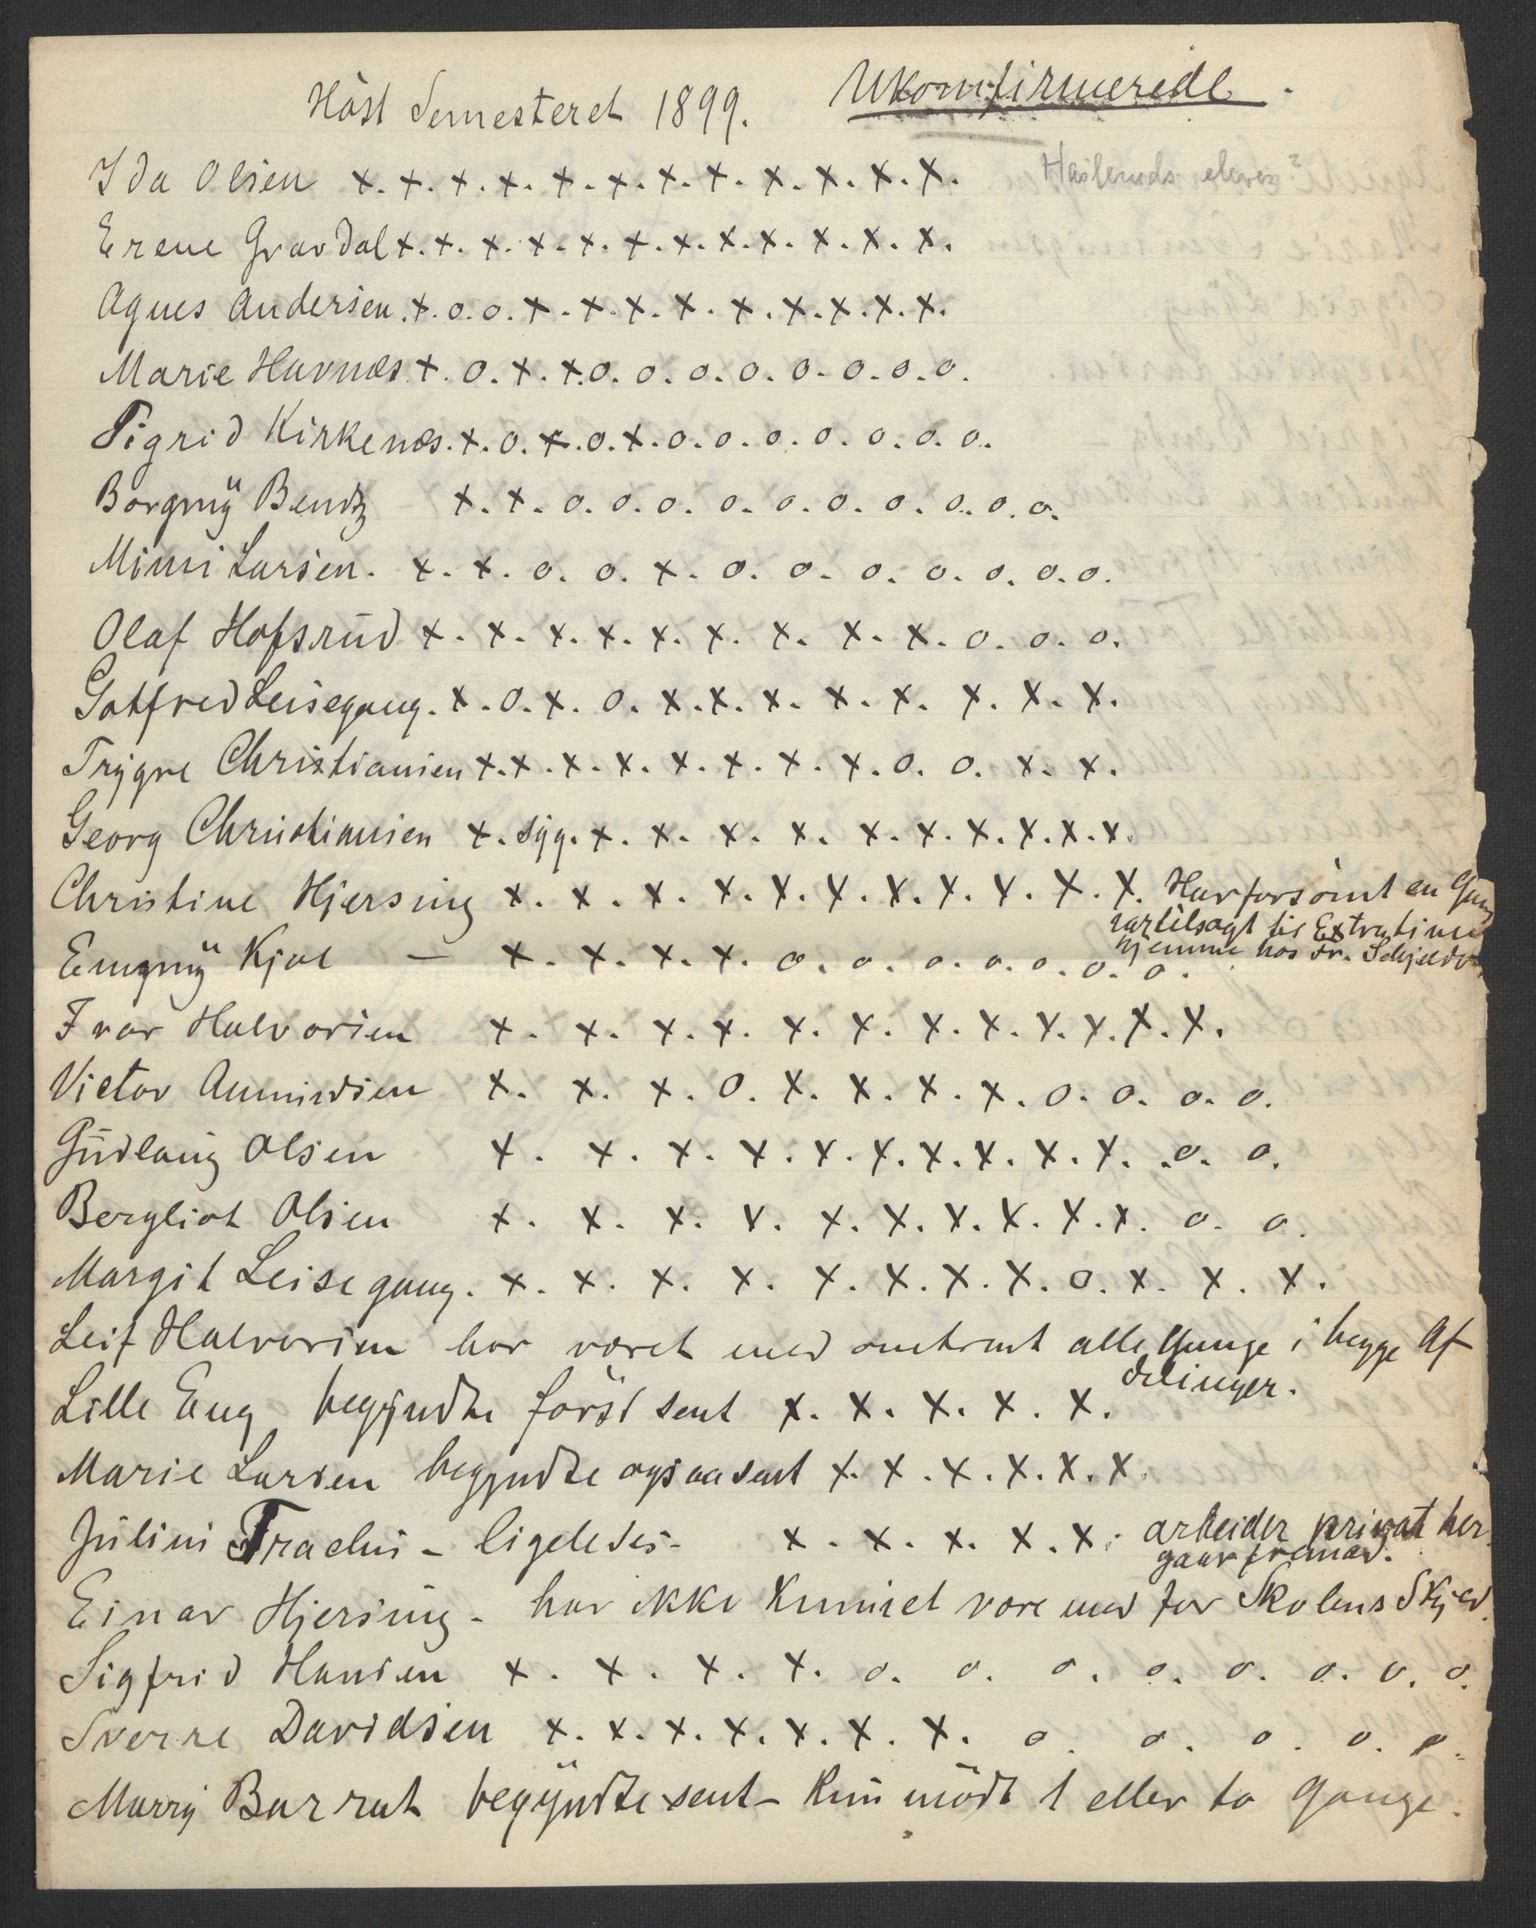 Höst Semesteret 1899. Ukomfirmerede.
Haslunds elever?
Ida Olsen x. x. x. x. x. x. x. x. x. x. x. x.
Erene Gravdal x. x. x. x. x. x. x. x. x. x. x. x.
Agnes Andersen. x. o. o. x. x. x. x. x. x. x. x. x.
Marie Havnæs x. o. x. x. o. o. o. o. o. o. o. o.
Sigrid Kirkenæs. x. o. x. o. x. o. o. o. o. o. o. o.
Borgnÿ Bentz x. x. o. o. o. o. o. o. o. o. o. o.
Mimi Larsen. x. x. o. o. x. o. o. o. o. o. o. o.
Olaf Hofsrud x. x. x. x. x. x. x. x. x. o. o. o.
Gotfred Leisegang. x. o. x. o. x. x. x. x. x. x. x. x.
Trÿgve Christiansen x. x. x. x. x. x. x. x. o. o. x. x.
Georg Christiansen x. sÿg. x. x. x. x. x. x. x. x. x. x.
Christine Hjersing x. x. x. x. x. x. x. x. x. x. x. Har forsömt en Gang
var tilsagt til Extratime
hjemme hos Fr. Schjelder
Emgnÿ Kjøl — x. x. x. x. o. o. o. o. o. o. o.
Ivar Halvorsen x. x. x. x. x. x. x. x. x. x. x. x.
Victor Amundsen x. x. x. o. x. x. x. x. o. o. o. o.
Gudlaug Olsen x. x. x. x. x. x. x. x. x. x. o. o.
Bergliot Olsen x. x. x. x. x. x. x. x. x. x. o. o.
Margit Leisegang. x. x. x. x. x. x. x. x. o. x. x. x.
Leif Halvorsen har været med omtrent alle Gange i begge Af
delinger.
Lille Eng begÿndte först sent x. x. x. x. x.
Marie Larsen begyndte ogsaa sent x. x. x. x. x. x.
Julini - ligeledes - x. x. x. x. x. arbeider privat her
gaar fremad.
Einar Hjersing - har ikke Kunnet være med for Skolens Skyld.
Sigfrid Hansen x. x. x. x. o. o. o. o. o. o. o. o.
Sverre Davidsen x. x. x. x. x. x. x. o. o. o. o. o.
Marrÿ Barrat begÿndte sent - Kun mödt 1 eller to Gange.